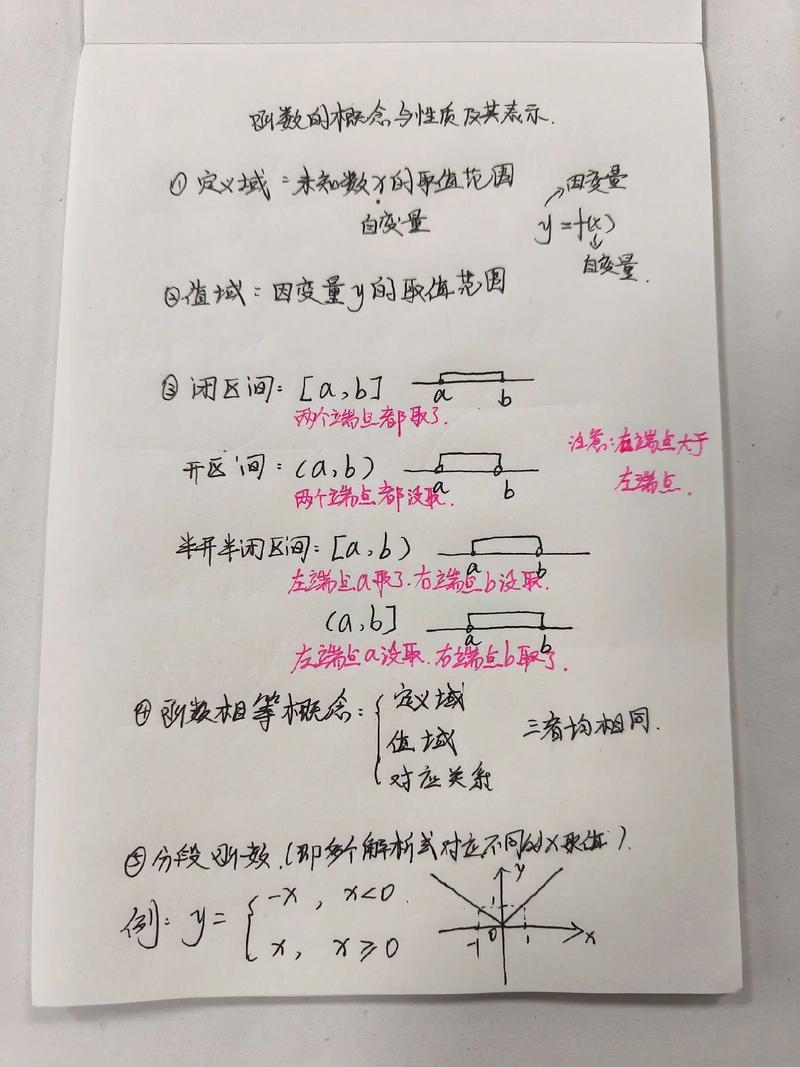 函数的概念与性质及其表示.
① 定义域：未知数x的取值范围
自变量
因变量
y=f(x)
自变量.
②值域：因变量y的取值范围
③ 闭区间：[a,b]
a b
两个端点都取了.
开区间：(a,b)
a b
两个端点都没取.
注意：右端点大于
左端点.
半开半闭区间：[a,b)
a b
左端点a取了.右端点b没取.
(a,b]
a b
左端点a没取.右端点b取了.
④函数相等概念：{定义域
值域
对应关系
三者均相同.
⑤分段函数.(即多个解析式对应不同的x取值).
例：y={-x, x<0.
x, x≥0
y
1
-1 0 1 x